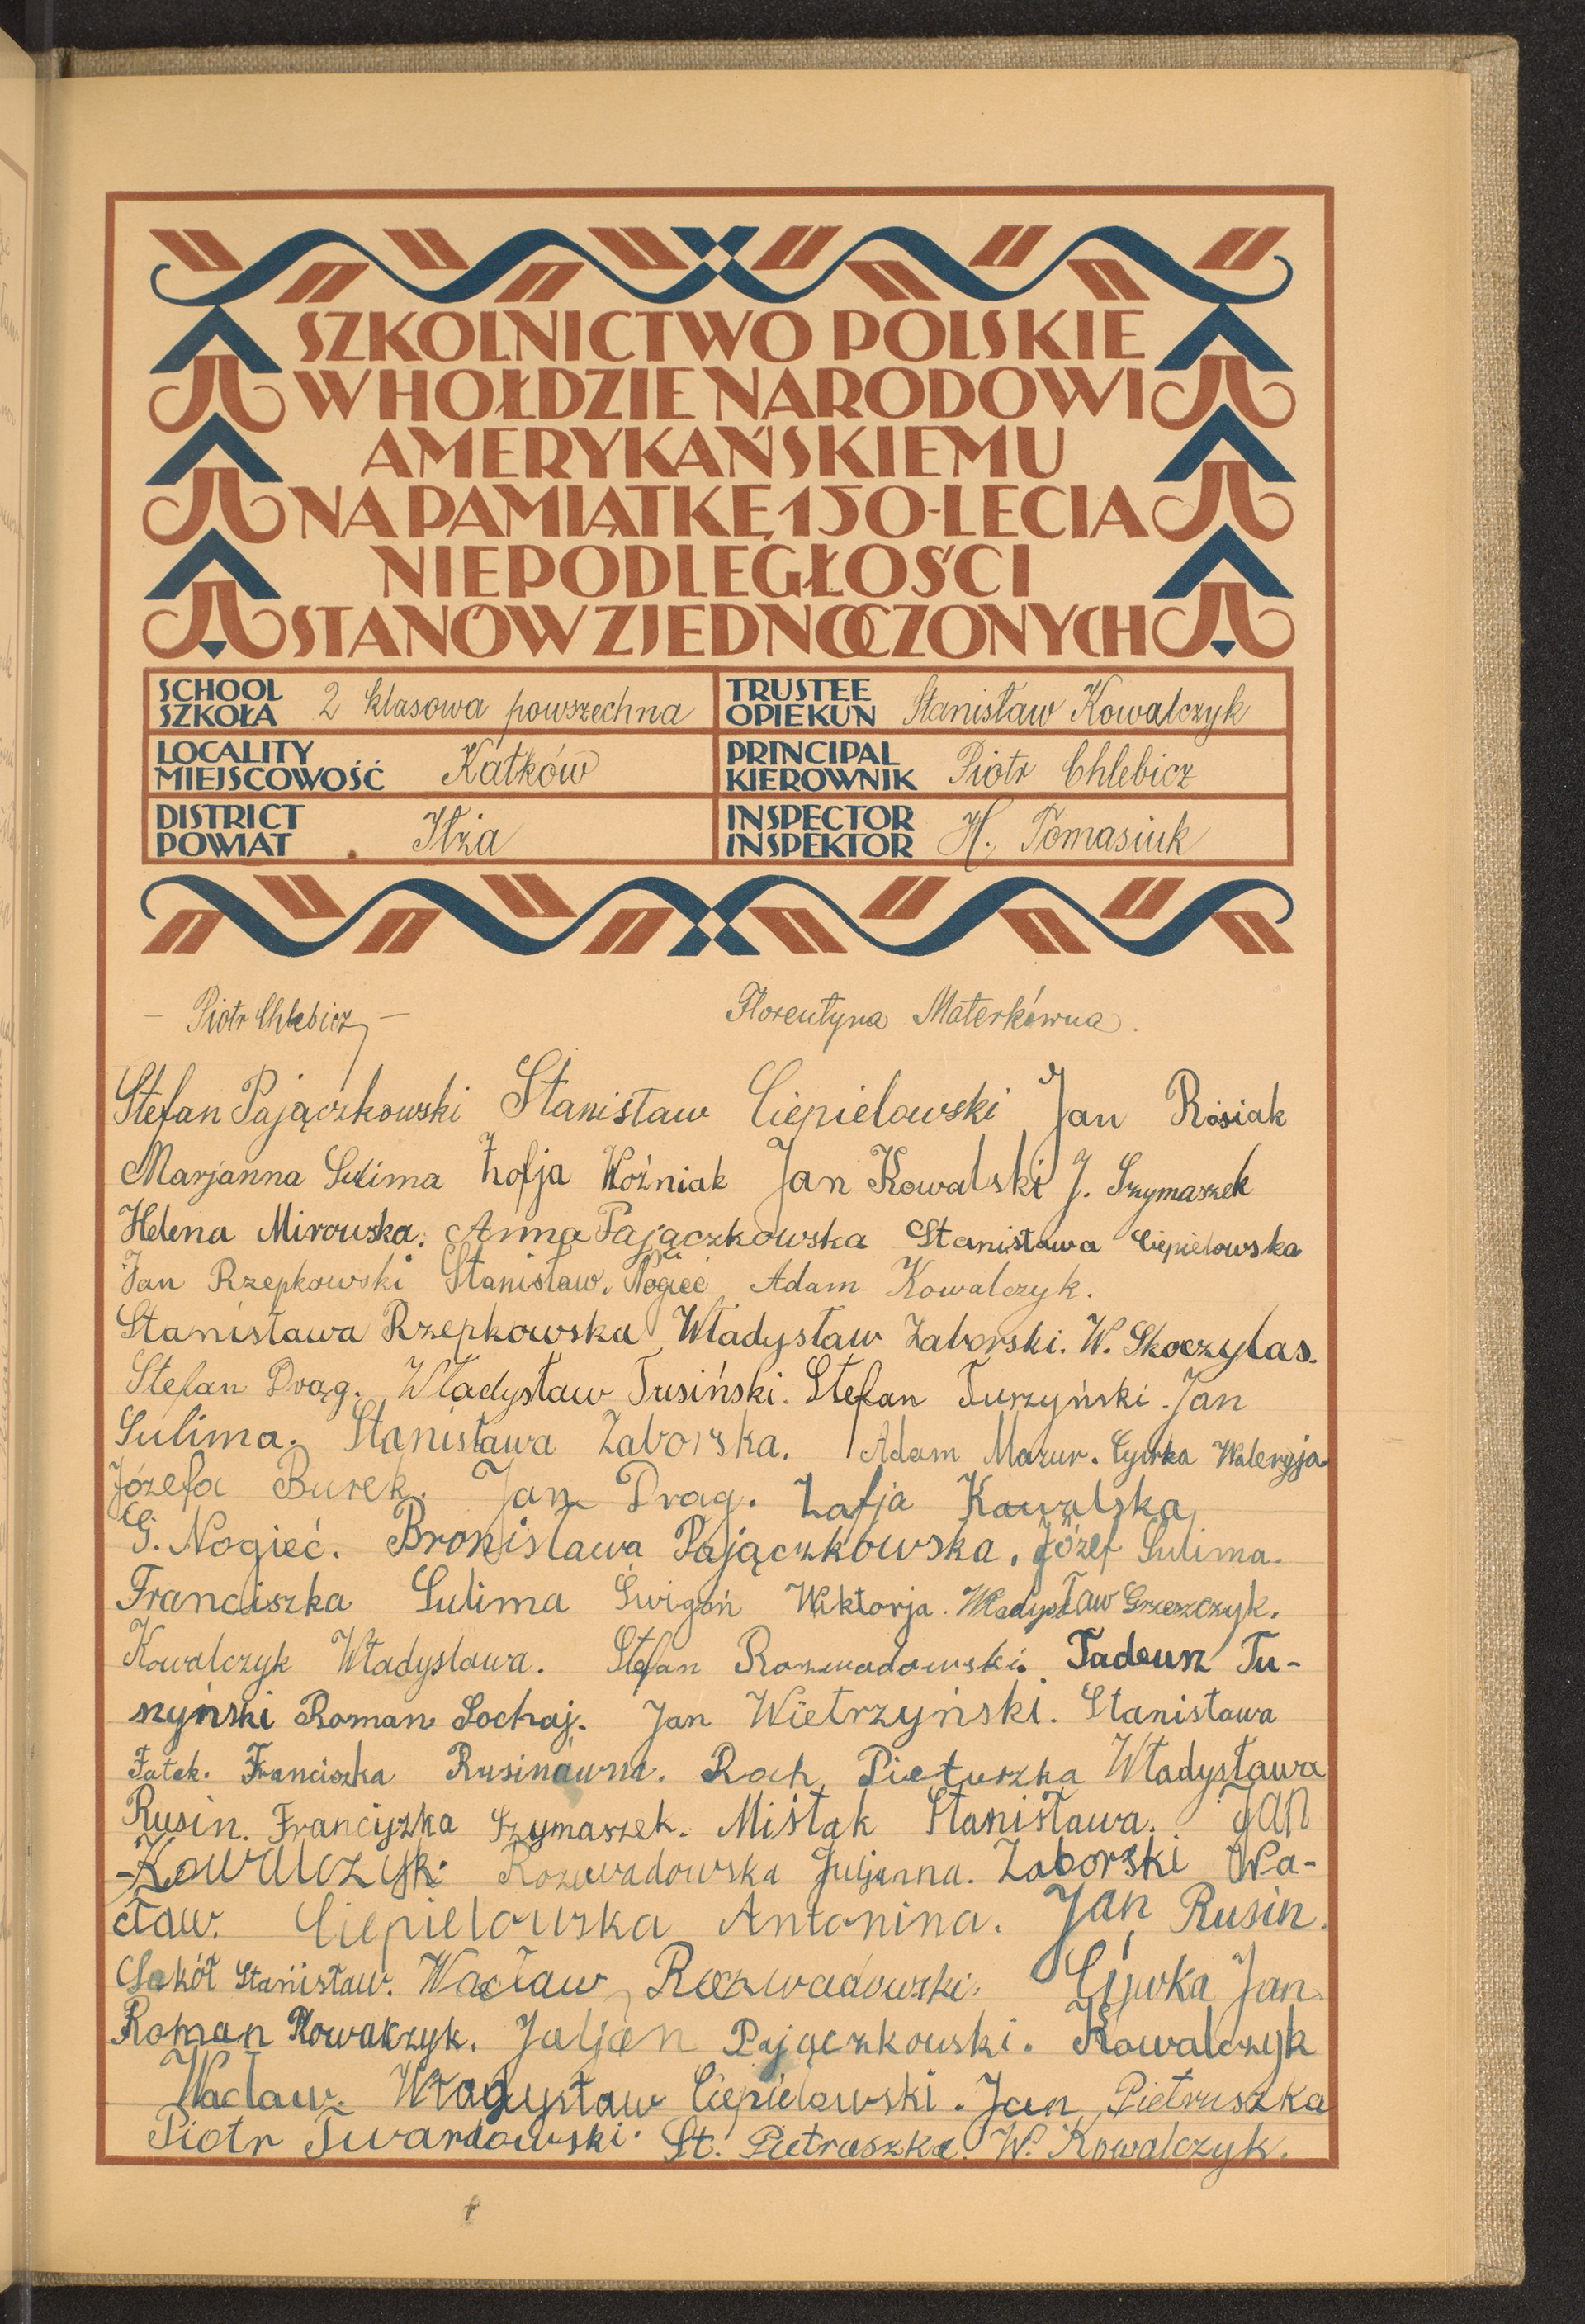 SZKOLNICTWO POLSKIE
W HOŁDZIE NARODOWI
AMERYKAŃSKIEMU
NA PAMIĄTKĘ 150-LECIA
NIEPODLEGŁOŚCI
STANÓW ZJEDNOCZONYCH
SCHOOL
SZKOŁA 2 klasowa powszechna
TRUSTEE
OPIEKUN Stanisław Kowalczyk
LOCALITY
MIEJSCOWOŚĆ Kałków
PRINCIPAL
KIEROWNIK Piotr Chlebicz
DISTRICT
POWIAT Iłża
INSPECTOR
INSPEKTOR H. Tomasiuk
- Piotr Chlebicz - Florentyna Materkówna.
Stefan Pajączkowski Stanisław Ciepielowski Jan Rosiak
Marjanna Sulima Zofja Woźniak Jan Kowalski J. Szymaszek
Helena Mirowska. Anna Pajączkowska Stanisława Ciepielowska
Jan Rzepkowski Stanisław. Nogieć Adam Kowalczyk.
Stanisława Rzepkowska Władysław Zaborski. W. Skoczylas.
Stefan Drąg. Władysław Tusiński. Stefan Turzyński. Jan
Sulima. Stanisława Zaborska. Adam Mazur. Cywka Waleryja
Józefa Burek. Jan Drag. Zofja Kowalska
G. Nogieć. Bronisława Pajączkowska. Józef Sulima.
Franciszka Sulima Świgoń Wiktorja. Władysław Grzeszczyk.
Kowalczyk Władysława. Stefan Rozwadowski. Tadeusz Tu-
szyński Roman Sochaj. Jan Wietrzyński. Stanisława
Fatek. Franciszka Rusinówna. Roch Pietuszka Władysława
Rusin. Franciszka Szymaszek. Miśtak Stanisława. Jan
Kowalczyk. Rozwadowska Juljanna. Zaborski Wa-
cław. Ciepielowska Antonina. Jan Rusin.
Sokół Stanisław. Wacław Rozwadowski. Cywka Jan.
Roman Kowalczyk. Juljan Pajączkowski. Kowalczyk
Wacław. Władysław Ciepielowski. Jan Pietruszka
Piotr Twardowski. St. Pietruszka. W. Kowalczyk.